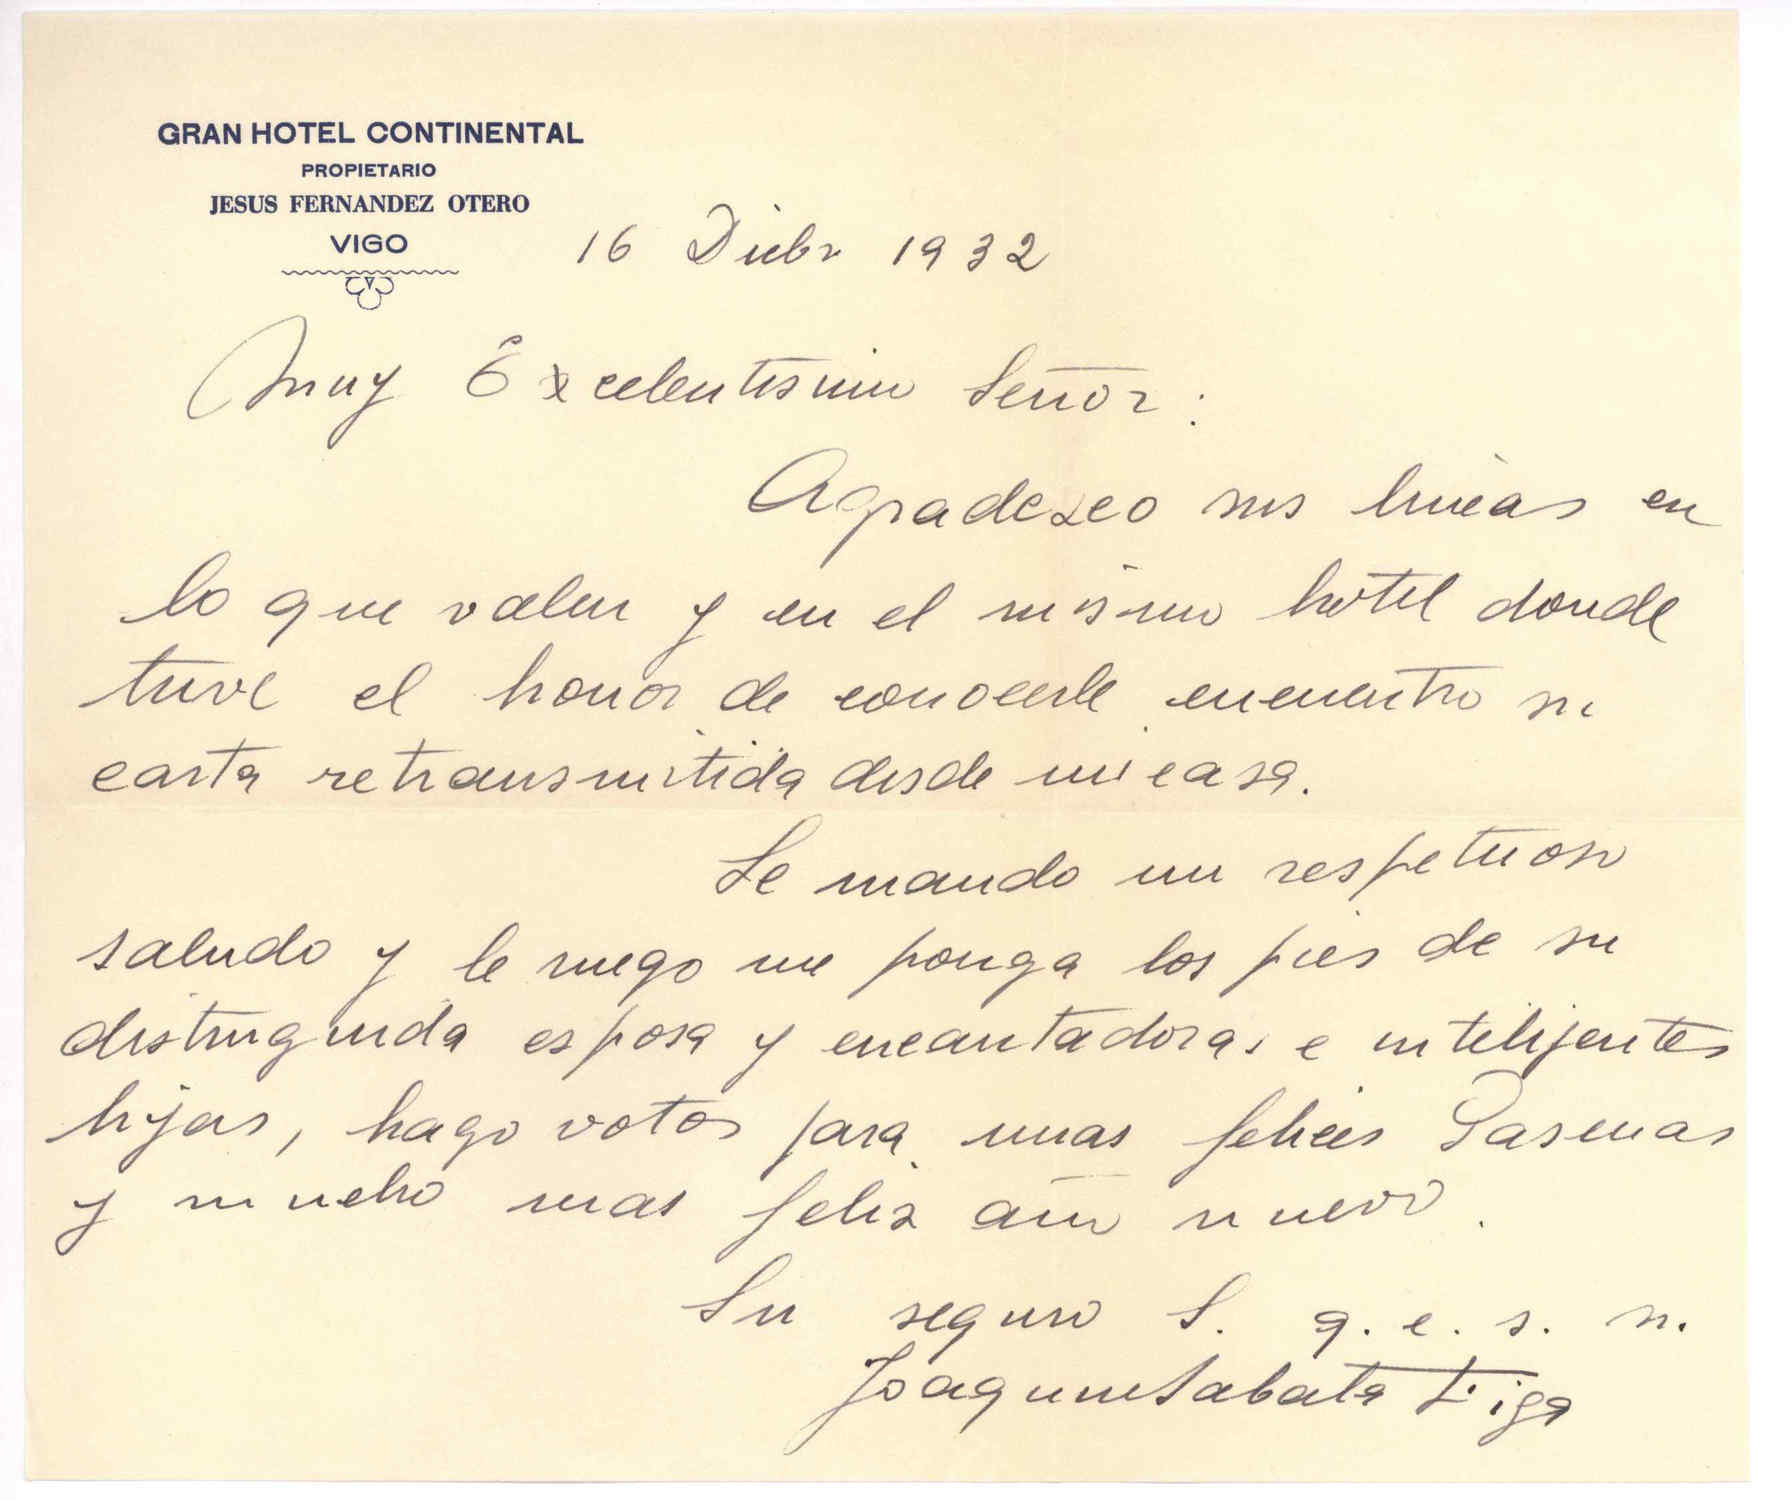 GRAN HOTEL CONTINENTAL
PROPIETARIO
JESUS FERNANDEZ OTERO
VIGO
16 Dicbr 1932
Muy Excelentisimo Señor:
Agradezco sus lineas en
lo que valen y en el mismo hotel donde
tuve el honor de conocerle encuentro su
carta retransmitida desde mi casa.
Le mando un respetuoso
saludo y le ruego me ponga los pies de su
distinguida esposa y encantadoras e intelijentes
hijas, hago votos para unas felices Pascuas
y mucho mas feliz año nuevo.
Su seguro S. q. e. s. m.
Joaquim Sabata